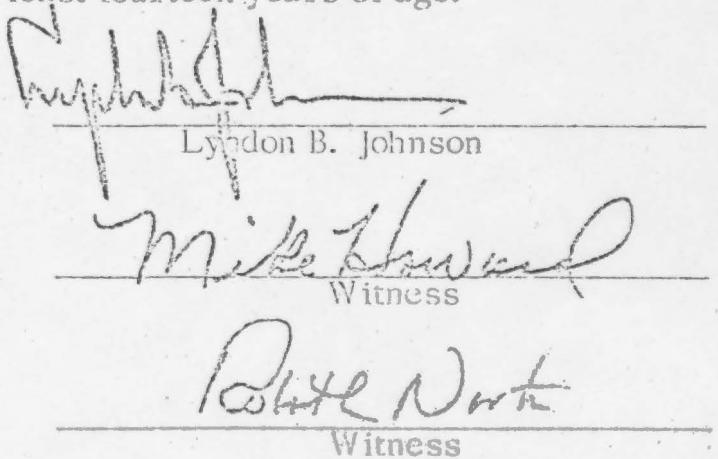 least fourteen years of age.
Lyndon B. Johnson
Mike Howard
Witness
North
Witness